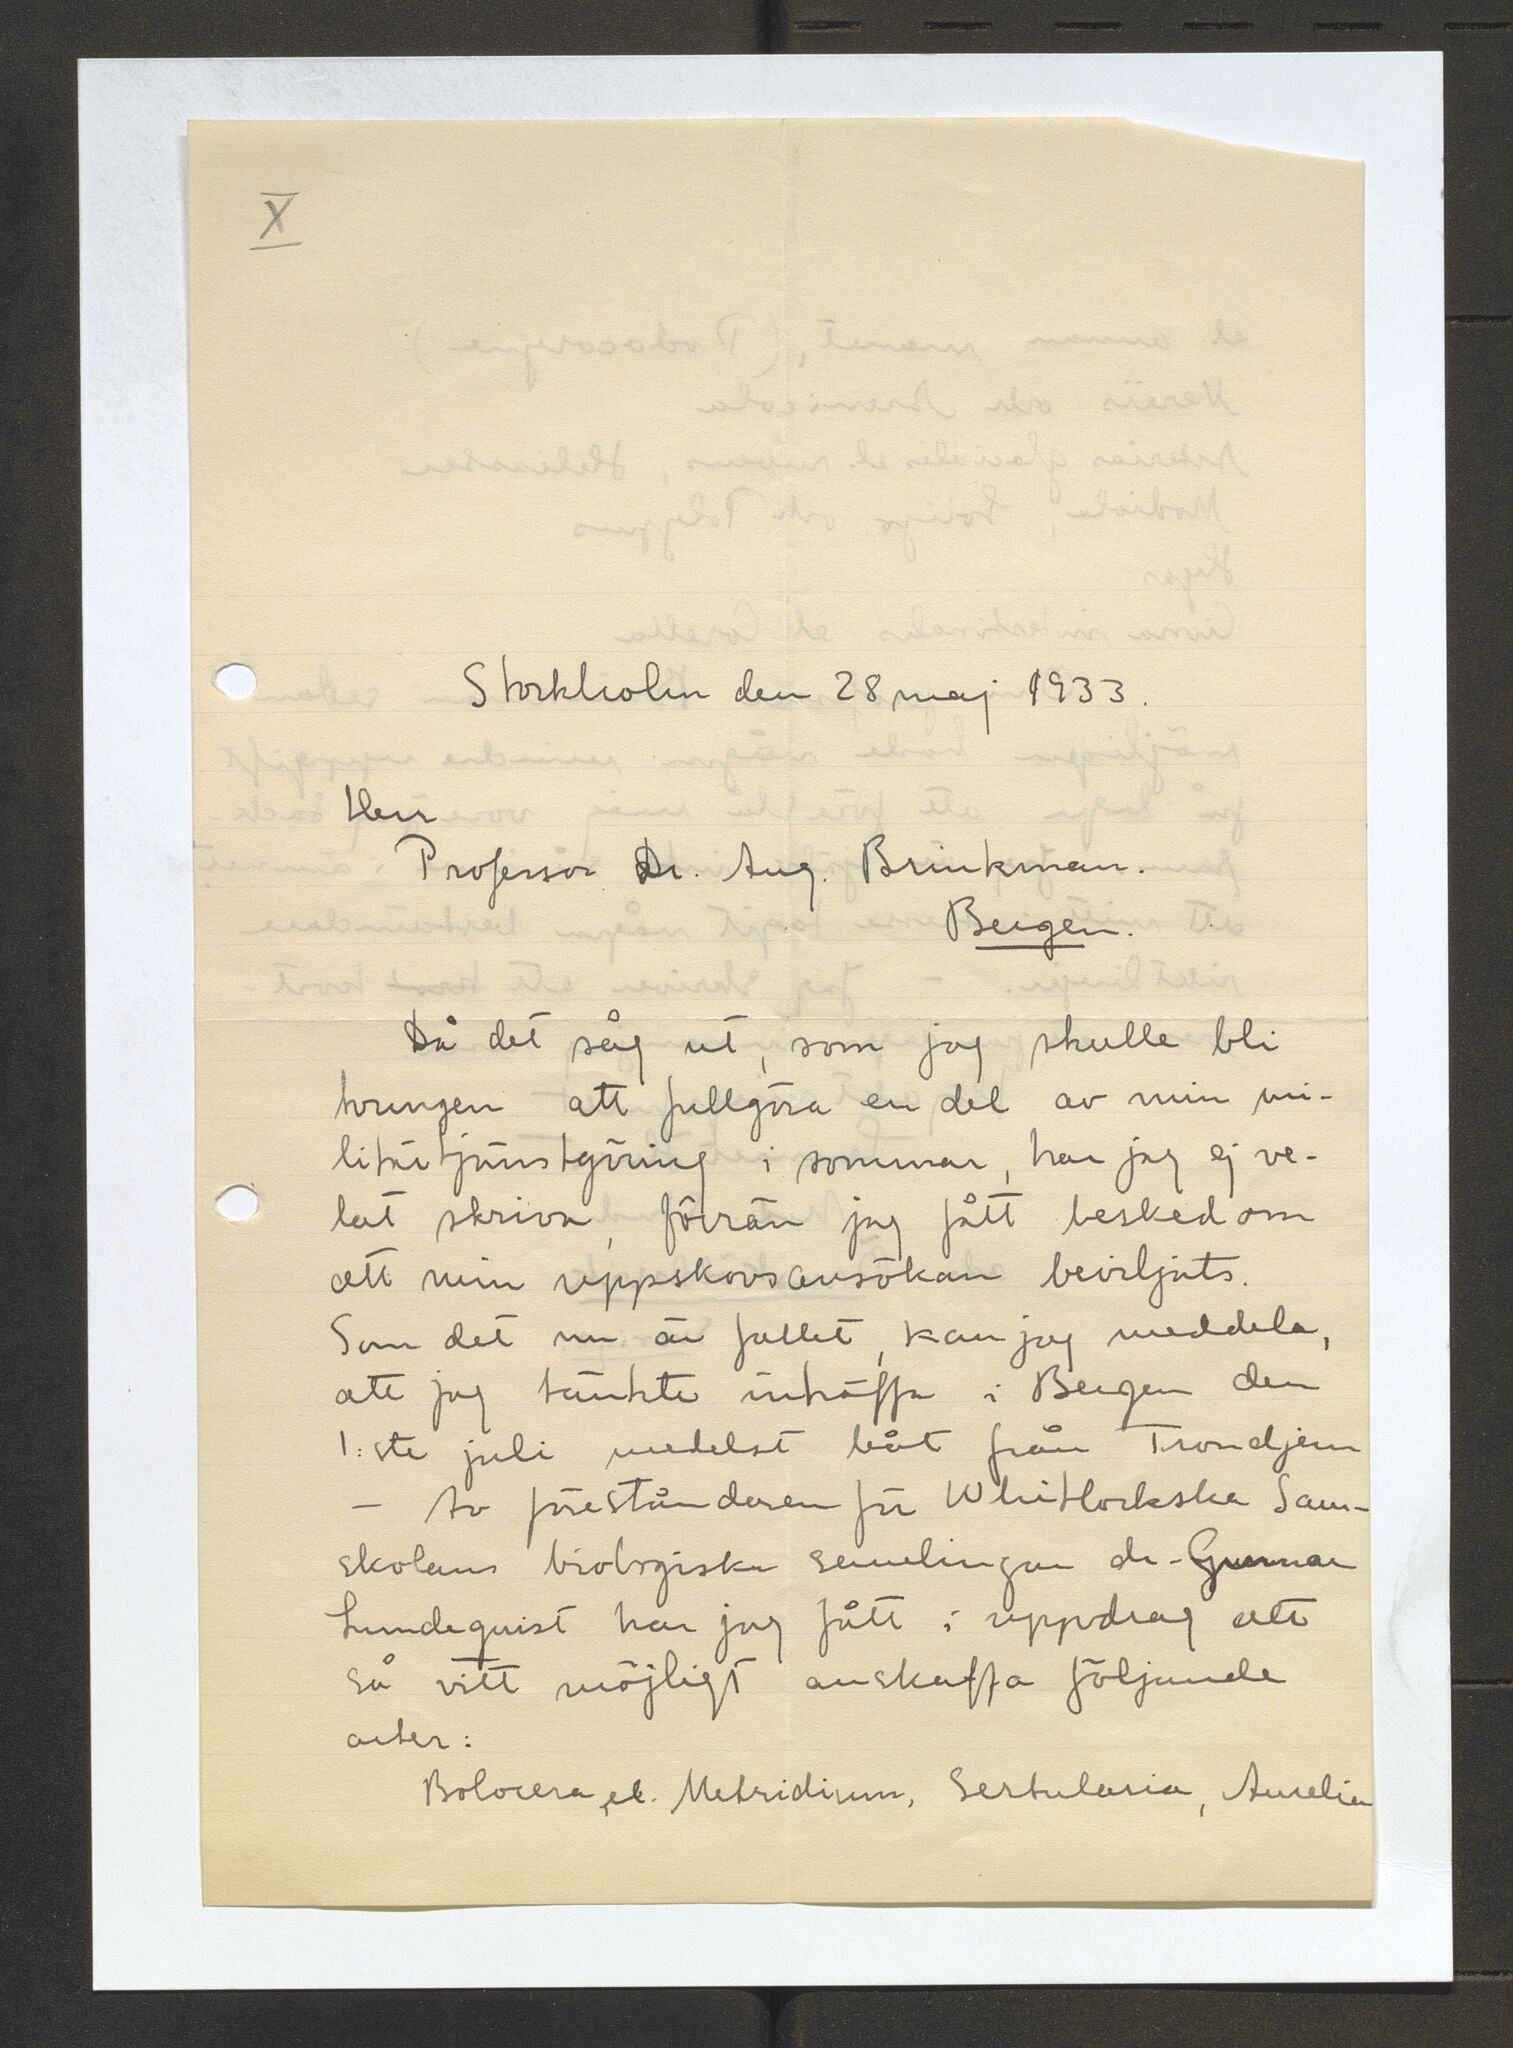 X
Stockholm den 28 maj 1933.
Herr
Professor Dr. Aug. Brinkman.
Bergen.
Då det såg ut, som jag skulle bli
tvungen att fullgöra en del av min mi-
litärtjänstgöring i sommar, har jag ej ve-
lat skriva, förrän jag fått besked om
att min uppskovsansökan beviljats.
Som det nu är fallet, kan jag meddela,
att jag tänkte inträffa i Bergen den
1:ste juli medelst båt från Trondjem
— Av föreståndaren för Whitlockska Sam-
skolans biologiska samlingar dr. Gunnar
Lundequist har jag fått i uppdrag att
så vitt möjligt anskaffa följande
arter:
Bolocera el. Metridium, Sertularia, Aurelia